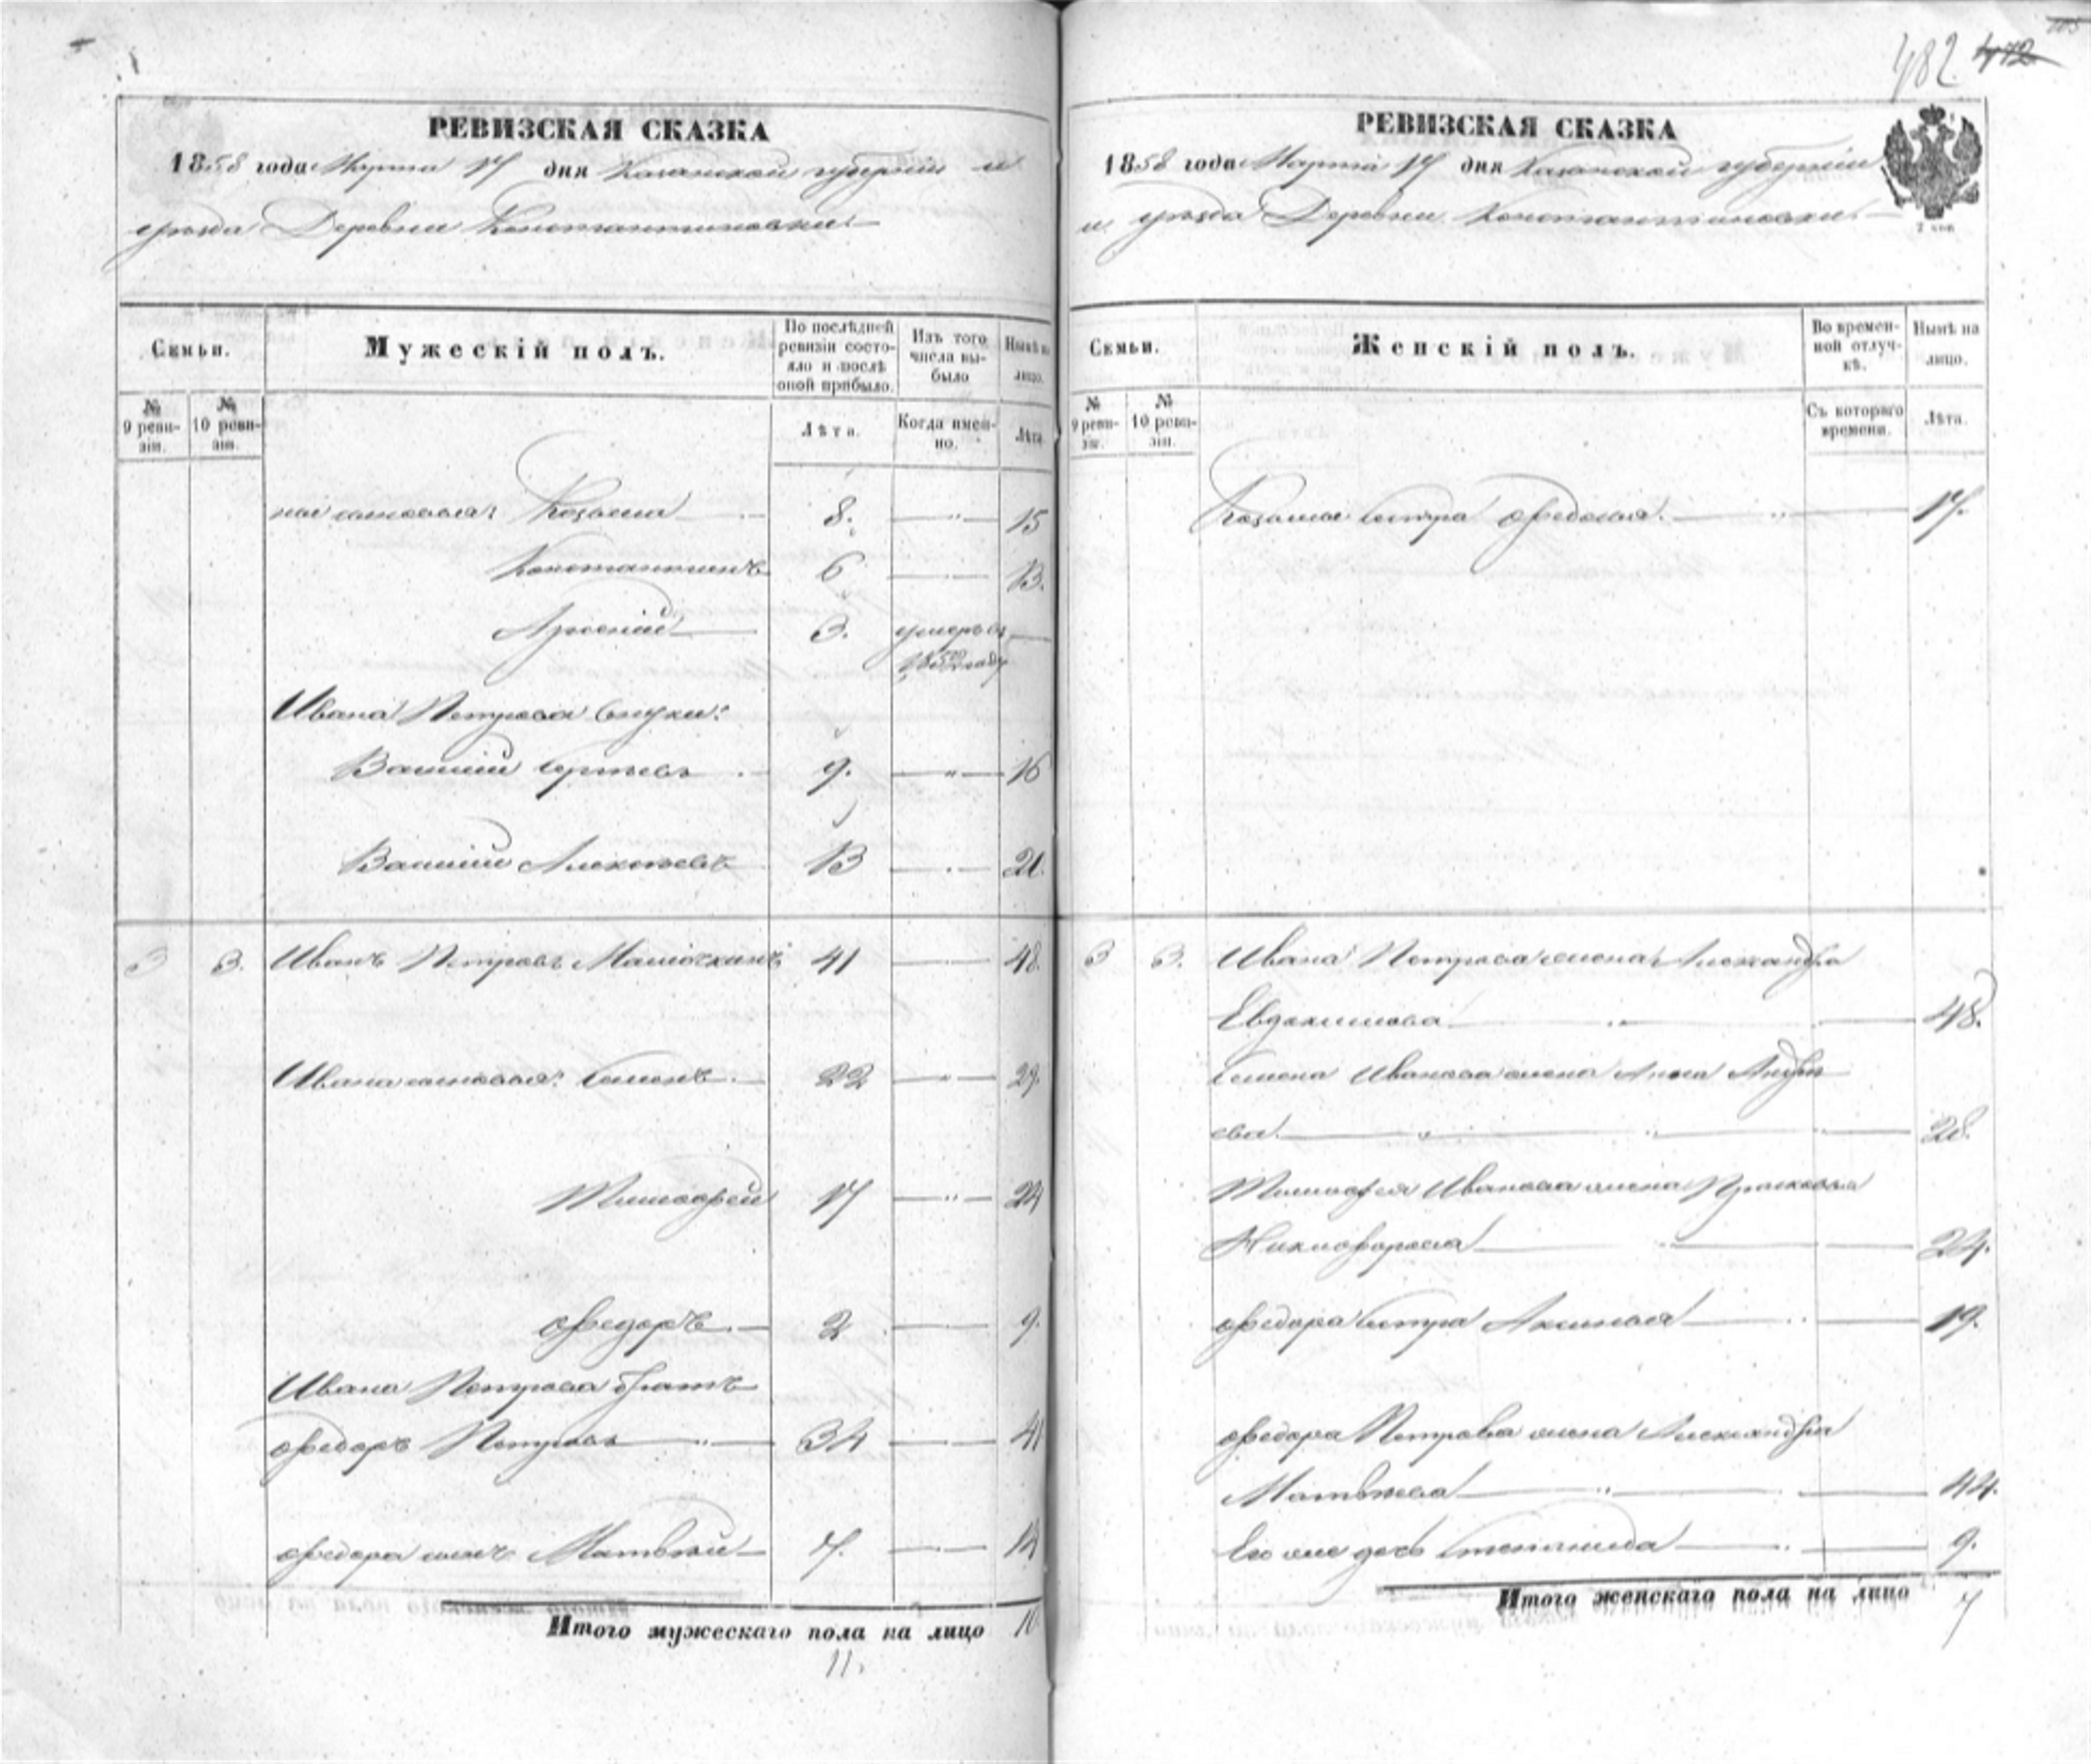 482. 472
РЕВИЗСКАЯ СКАЗКА
1858 года Марта 17 дня Казанской губернiи и
уѣзда Деревни Константиновки.
Семьи.
Мужескiй полъ.
По послѣдней ревизiи состояло и послѣ оной прибыло.
Изъ того числа выбыло
Нынѣ на лицо.
№ 9 ревизiи.
№ 10 ревизiи.
Лѣта.
Когда именно.
Лѣта.
сыновья: Козьма 8. — " — 15
Константинъ 6 — 13.
Арсенiй 3. умеръ въ —
1850 году
Ивана Петрова внуки:
Василiй Сергѣевъ 9. — " — 16
Василiй Алексѣевъ 13 — 20.
3 3. Иванъ Петровъ Масючкинъ 41 — 48.
Ивана сыновья: Семенъ 22 — " — 29.
Тимофей 17 — " — 24
Федоръ 2 — 9.
Ивана Петрова братъ
Федоръ Петровъ — " — 34 — 41
Федора сынъ Матвѣй 7. — 14
Итого мужескаго пола на лицо 10.
11.
РЕВИЗСКАЯ СКАЗКА
1858 года Марта 17 дня Казанской губернiи
и уѣзда Деревни Константиновки.
2 коп
Семьи.
Женскiй полъ.
Во временной отлучкѣ.
Нынѣ на лицо.
№ 9 ревизiи.
№ 10 ревизiи.
Съ котораго времени.
Лѣта.
Козьмы сестра Федосья. — " — 17.
3 3. Ивана Петрова жена Александра
Евдокимова — " — 48.
Семена Иванова жена Анна Андре
ева. — " — " — 28.
Тимофея Иванова жена Прасковья
Никифорова — " — 24.
Федора сестра Аксинья — 19.
Федора Петрова жена Александра
Матвѣева — " — 44.
Его же дочь Степанида — 9.
Итого женскаго пола на лицо 7